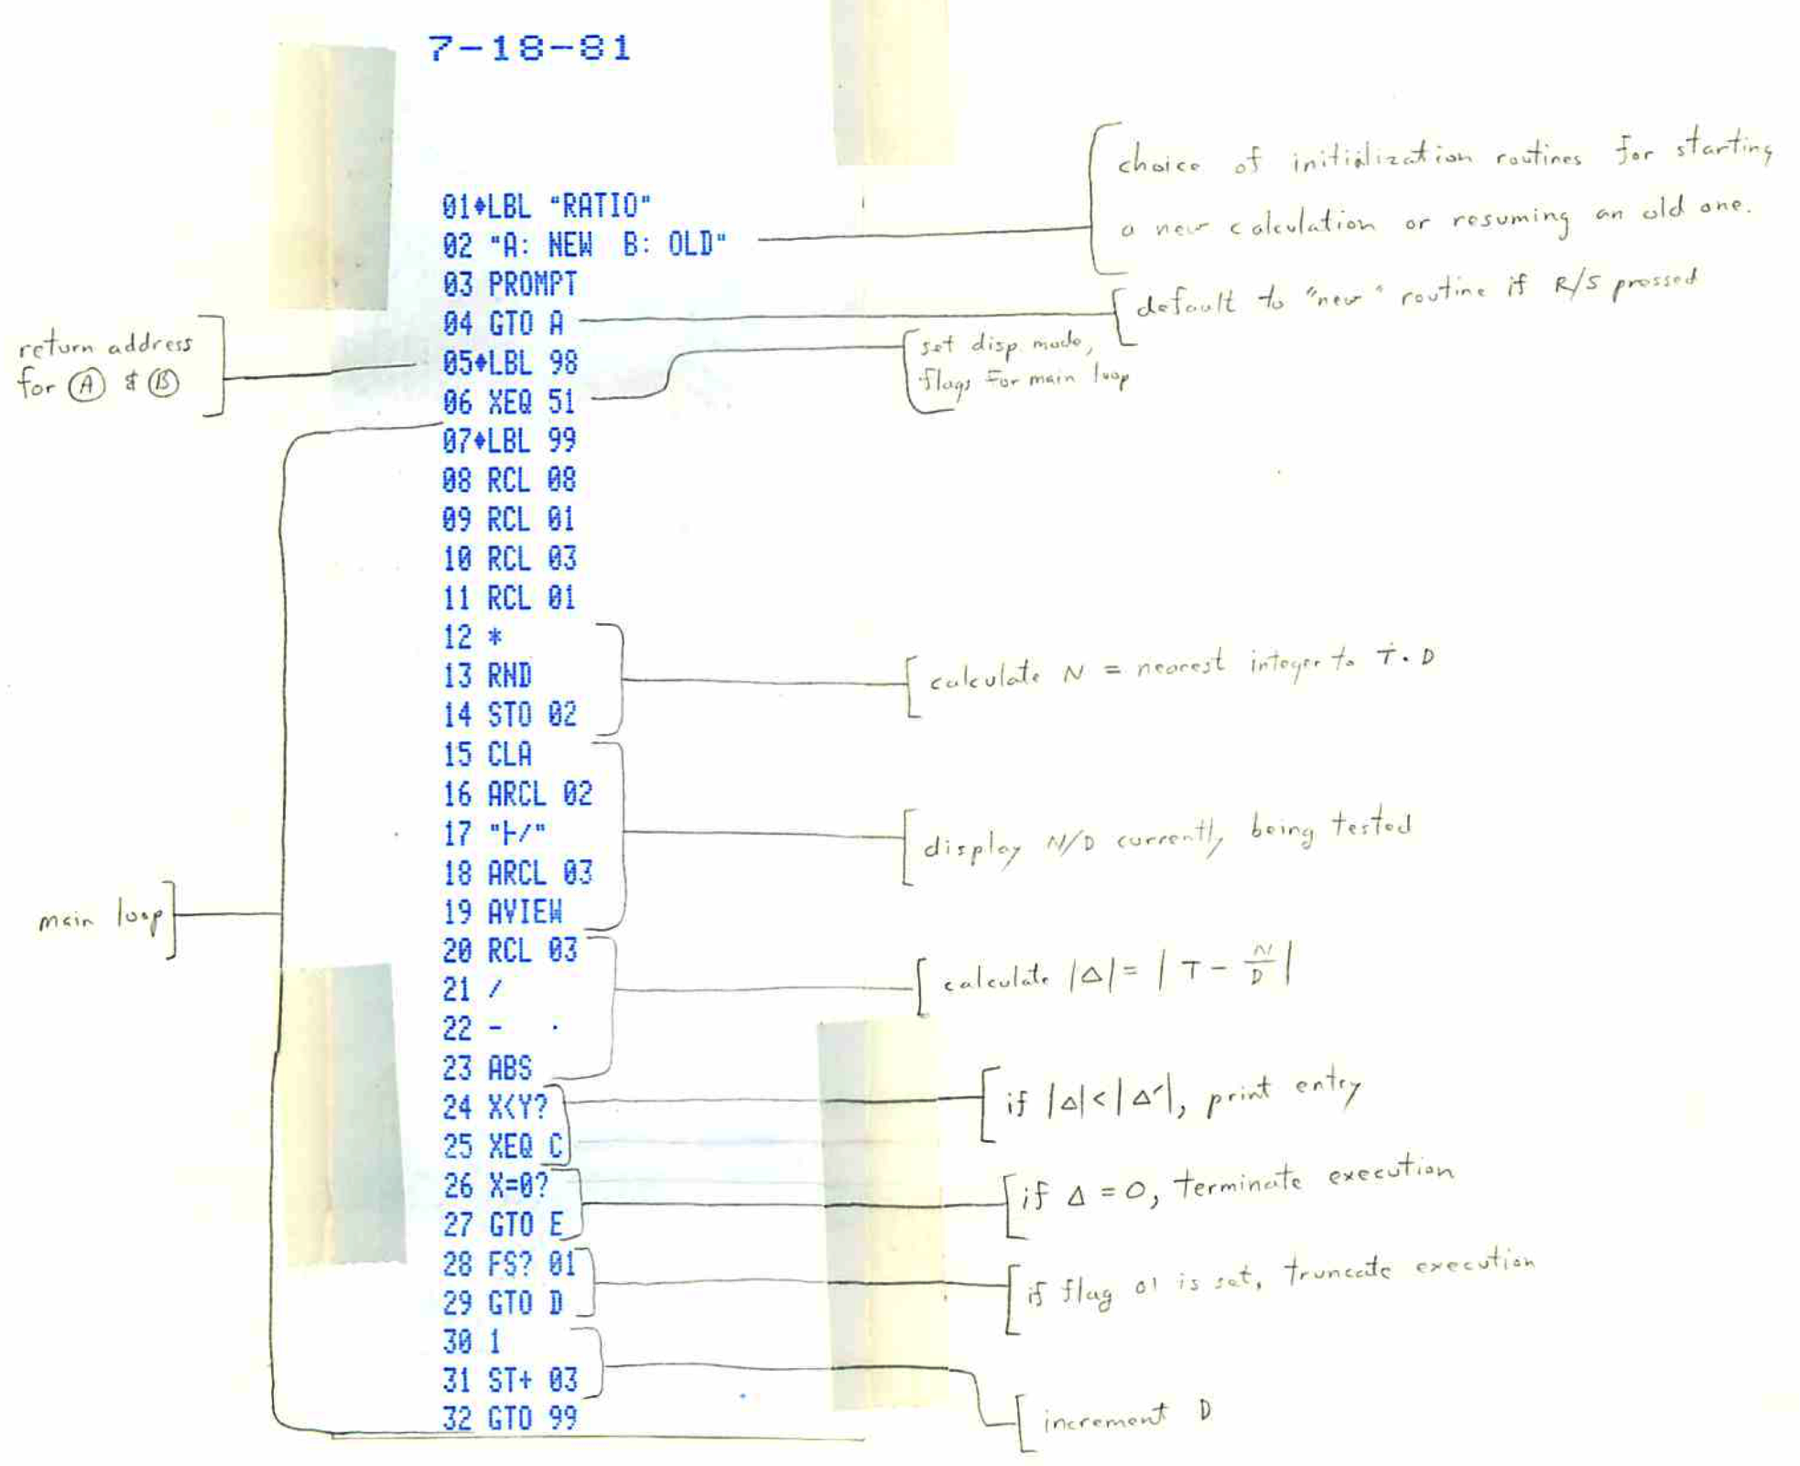 7-18-81
choice of initialization routines for starting
a new calculation or resuming an old one.
01♦LBL "RATIO"
02 "A: NEW  B: OLD"
03 PROMPT
default to "new" routine if R/S pressed
04 GTO A
return address
for Ⓐ & Ⓑ
set disp. mode,
flags for main loop
05♦LBL 98
06 XEQ 51
07♦LBL 99
08 RCL 08
09 RCL 01
10 RCL 03
11 RCL 01
12 *
13 RND
calculate N = nearest integer to T·D
14 STO 02
15 CLA
16 ARCL 02
17 "⊢/"
display N/D currently being tested
18 ARCL 03
19 AVIEW
main loop
20 RCL 03
21 /
calculate |Δ| = | T - N/D |
22 -
23 ABS
24 X<Y?
if |Δ|<|Δ'|, print entry
25 XEQ C
26 X=0?
if Δ = 0, terminate execution
27 GTO E
28 FS? 01
if flag 01 is set, truncate execution
29 GTO D
30 1
31 ST+ 03
32 GTO 99
increment D